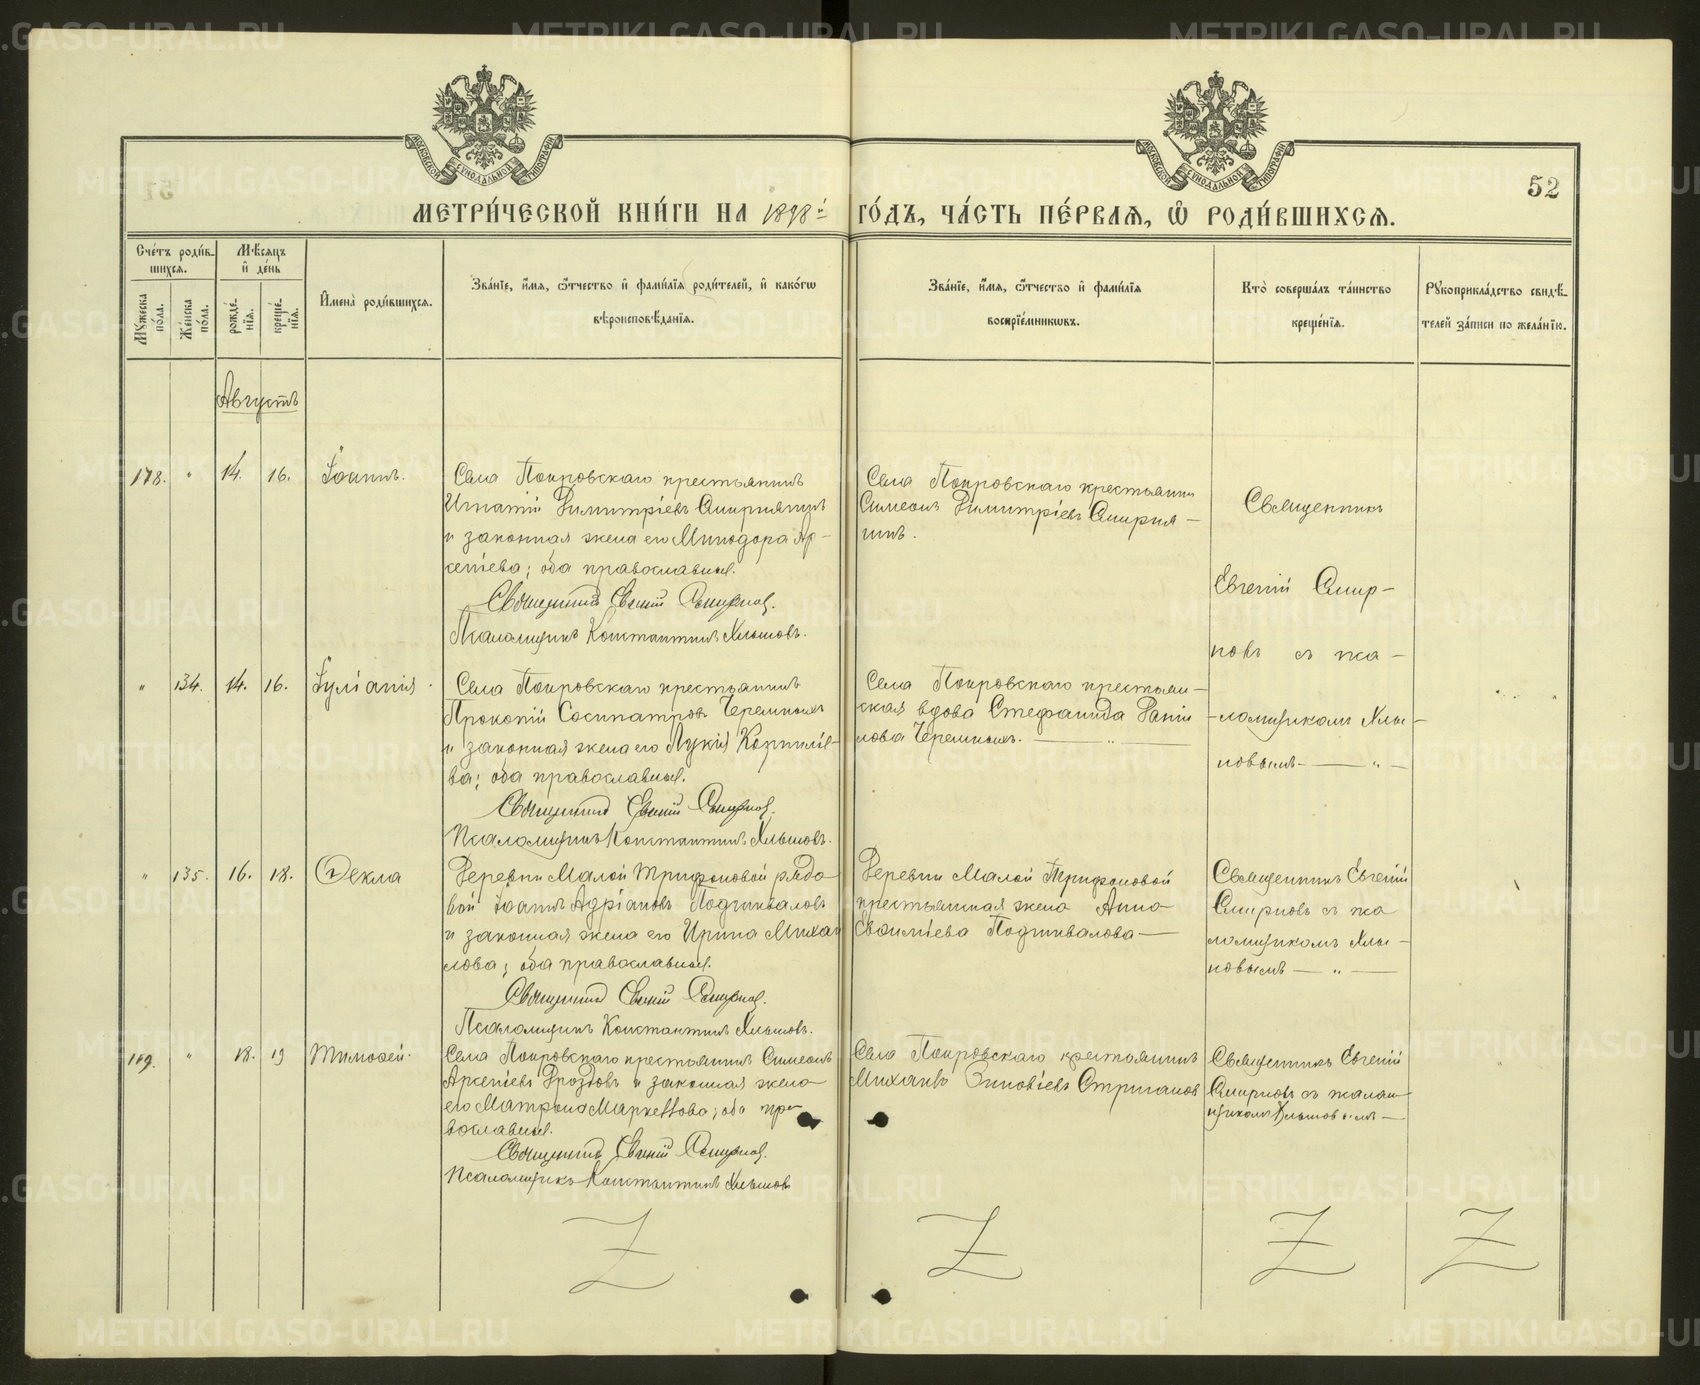 52
МЕТРИ́ЧЕСКОЙ КНИ́ГИ НА 1898й ГО́ДЪ, ЧА́СТЬ ПЕ́РВАѦ, Ѽ РОДИ́ВШИХСѦ.
Сче́тъ роди́в-
шихсѧ.
Мꙋ́жеска по́ла.
Же́нска по́ла.
Мѣ́сѧцъ и҆ де́нь
рожде́-
нїѧ.
креще́-
нїѧ.
И҆мена̀ роди́вшихсѧ.
Зва́нїе, и҆́мѧ, ѻ҆́тчество и҆ фами́лїѧ роди́телей, и҆ како́гѡ
вѣроисповѣ́данїѧ.
Зва́нїе, и҆́мѧ, ѻ҆́тчество и҆ фами́лїѧ
воспрїе́мникѡвъ.
Кто̀ соверша́лъ та́инство
креще́нїѧ.
Рꙋкоприкла́дство свидѣ́-
телей за́писи по жела́нїю.
Августъ
178. " 14. 16. Іоаннъ.
Села Покровскаго крестьянинъ
Игнатій Димитріевъ Смирнягинъ
и законная жена его Минодора Ар-
сеніева; оба православные.
Священникъ Евгеній Смирнов.
Псаломщикъ Константинъ Хлыновъ.
Села Покровскаго крестьянин
Симеонъ Димитріевъ Смирня-
гинъ.
Священникъ
Евгеній Смир-
новъ съ пса-
ломщикомъ Хлы-
новымъ — " —
" 134. 14. 16. Іуліанія.
Села Покровскаго крестьянинъ
Прокопій Сосипатровъ Черемныхъ
и законная жена его Лукія Корниліе-
ва; оба православные.
Священникъ Евгеній Смирнов.
Псаломщикъ Константинъ Хлыновъ.
Села Покровскаго крестьян-
ская вдова Стефанида Дани
лова Черемныхъ. — " —
" 135. 16. 18. Ѳекла
Деревни Малой Трифоновой рядо
вой Іоаннъ Адріановъ Подшиваловъ
и законная жена его Ирина Михаи
лова; оба православные.
Священникъ Евгеній Смирнов.
Псаломщикъ Константинъ Хлыновъ.
Деревни Малой Трифоновой
крестьянская жена Анна
Подшивалова —
Священникъ Евгеній
Смирновъ съ пса
ломщикомъ Хлы-
новымъ — " —
" 18. 19 Тимоѳей.
Села Покровскаго крестьянинъ Симеонъ
Арсеніевъ Дроздовъ и законная жена
его Матрона Маркеллова; оба пра-
вославные.
Священникъ Евгеній Смирнов.
Псаломщикъ Константинъ Хлыновъ
Села Покровскаго крестьянинъ
Михаилъ Зиновіевъ Стригановъ
Священникъ Евгеній
Смирновъ съ псалом-
щикомъ Хлыновымъ —
Z Z Z Z
METRIKI.GASO-URAL.RU